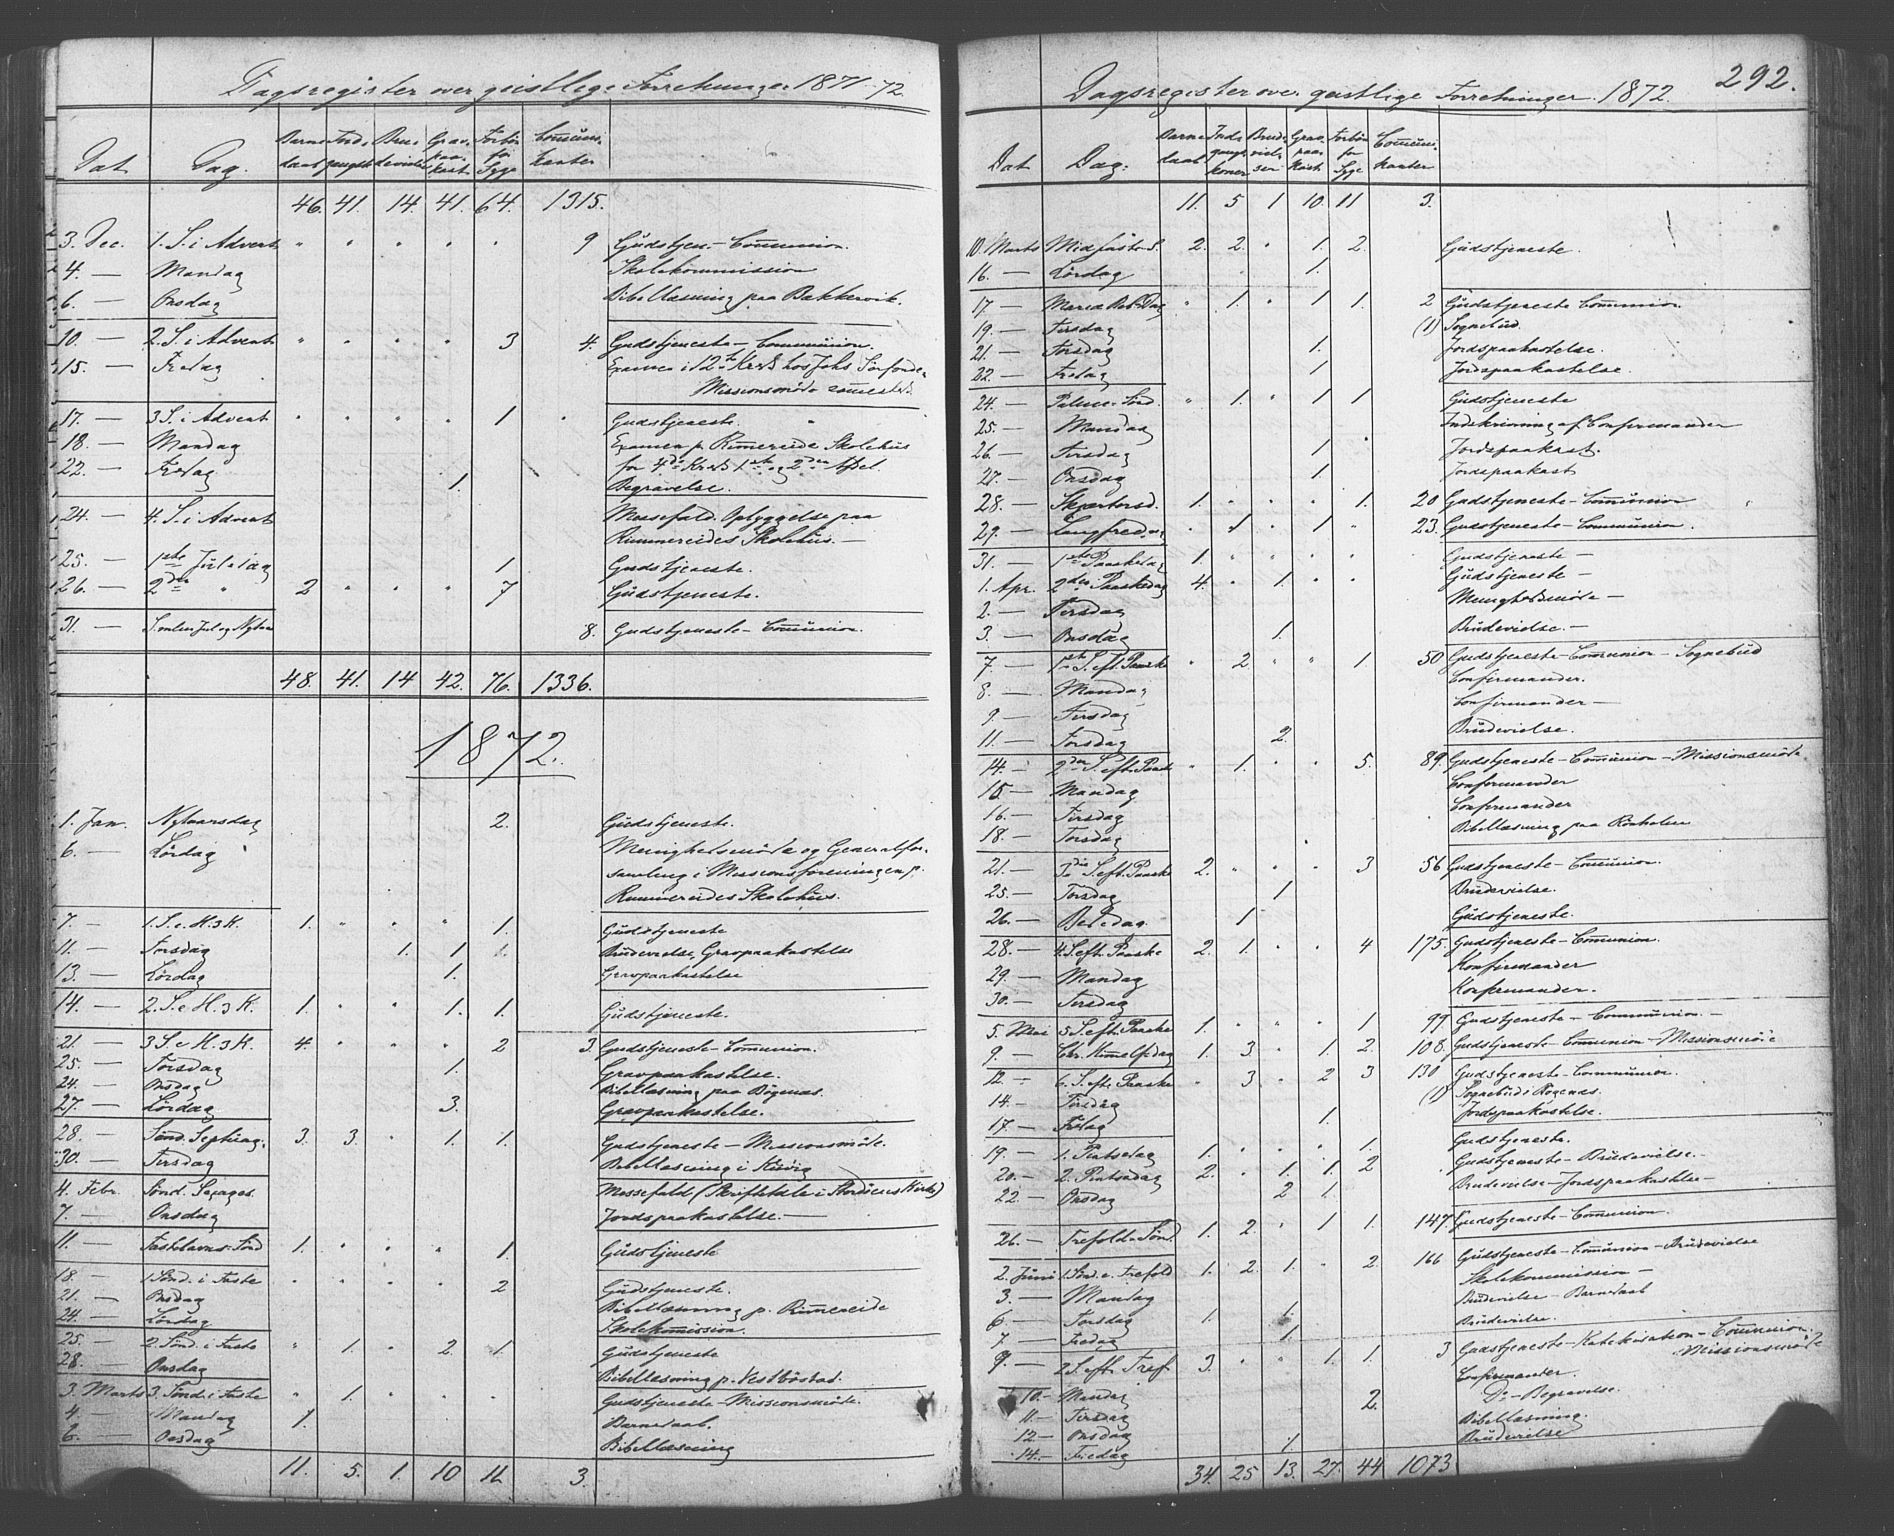 Dagsregister over geistlige Forretninger 1871-72.
Dat Dag. Barnedaab Indgangsk. Brudevielse Gravpaakast Forbøn for Syge Communikanter
46. 41. 14. 41. 64. 1315.
3. Dec. 1. S. i Advent " " " " " 9 Gudstjen. - Communion.
4. — Mandag Skolekommission
6. — Onsdag Bibellæsning paa Bakkervik.
10. — 2. S. i Advent " " " " 3 4. Gudstjeneste - Communion.
15. — Fredag Examen i 12te Kreds hos Johs Sørfonde
Missionsmøde sammesteds.
17. — 3 S. i Advent " " " " 1 " Gudstjeneste.
18. — Mandag Examen p. Rimmereide Skolehus
22. — Fredag for 4de Kreds 1ste og 2den Afdel.
1. Begravelse.
24. — 4. S. i Advent Messefald. Oplyggelse paa
Rimmereides Skolehus. —
25. — 1ste Juledag 1 Gudstjeneste.
26. — 2den " 2 " " " 7 Gudstjeneste.
31. — S. mellem Jul og Nytaar 8. Gudstjeneste - Communion.
48. 41. 14 42. 76. 1336.
1872.
1. Jan. Nytaarsdag 2. Gudstjeneste.
6. — Lördag Menighedsmöde og Generalfor-
samling i Missionsforeningen p.
Rimmereides Skolehus.
7. — 1. S. e. H. 3 K. 1. " " " 1. Gudstjeneste
11. — Torsdag 1. 1 Brudevielse, Gravpaakastelse
13. — Lördag 1. Gravpaakastelse
14. — 2. S. e H. 3 K. 1. " " 1. 1. Gudstjeneste.
21. — 3 S e H. 3 K. 4. " " " 2 3. Gudstjeneste - Communion.
25. — Torsdag 1. Gravpaakastelse.
24. — Onsdag Bibellæsning paa Bögenæs.
27. — Lördag 3. Gravpaakastelse.
28. — Sönd. Septuag. 3. 3. " 1. 1. Gudstjeneste - Missionsmöde.
30. — Tirsdag Bibellæsning i
4. Febr. Sönd. Sexages. Messefald (Skriftetale i Stordöens Kirke)
7. — Onsdag Jordspaakastelse. —
11. — Fastelavns-Sönd 1. " " " 1. Gudstjeneste
18. — 1 Sönd. i Faste " " " " 2 Gudstjeneste.
21. — Onsdag Bibellæsning p. Rimmereide
24. — Lördag Skolekommission.
25. — 2. Sönd. i Faste " 1. " 2. 1. Gudstjeneste
28. — Onsdag Bibellæsning p. Vestböstad.
3. Marts 3. Sönd. i Faste " 1. " " " Gudstjeneste - Missionsmöde.
4 — Mandag 1. Barnedaab.
6. — Onsdag Bibellæsning
11. 5. 1. 10 11. 3.
292.
Dagsregister over geistlige Forretninger 1872.
Dat Dag. Barnedaab Indgangskoner Brudevielser Gravpaakast. Forbøn for Syge Communikanter
11. 5 1 10. 11 3.
10. Marts Midfaste S. 2. 2. " 1. 2. Gudstjeneste.
16. — Lördag 1.
17. — Maria Beb. Dag " 1. " 1 1. 2 Gudstjeneste Communion
19. — Tirsdag (1) Sognebud.
21. — Torsdag 1. Jordspaakastelse.
22. — Fredag 1 Jordspaakastelse.
24. — Palme-Sönd. " 1. " 1 1 Gudstjeneste
25. — Mandag Indskrivning af Confirmander
26. — Tirsdag 1 Jordspaakast.
27. — Onsdag 1 Jordspaakast
28. — Skjærtorsd. 1. " " " 1. 20 Gudstjeneste - Communion
29. — Langfredag " 1 " 1 " 23. Gudstjeneste - Communion.
31. — 1ste Paaskedag 1. " " " " Gudstjeneste —
1. Apr. 2den Paaskedag 4. " 1. " " Gudstjeneste —
2. — Tirsdag Menighedsmöde —
3. — Onsdag 1. Brudevielse. —
7. — 1ste S. eft. Paaske " 2. " " 1 50 Gudstjeneste - Communion - Sognebud
8. — Mandag Confirmander.
9. — Tirsdag Confirmander —
11. — Torsdag 2. Brudevielse.
14. — 2den S. eft. Paaske " 1. " " 5. 89. Gudstjeneste - Communion - Missionsmöde
15. — Mandag Confirmander
16. — Tirsdag Confirmander
18. — Torsdag Bibellæsning paa
21. — 3die S. eft. Paaske 2. " " " 3 56 Gudstjeneste - Communion.
25. — Torsdag 1 Brudevielse.
26. — Bededag 1 Gudstjeneste.
28. — 4. S. eft. Paaske 2. 1. " " 4 175. Gudstjeneste - Communion.
29. — Mandag Konfirmander
30. — Tirsdag Konfirmander.
5. Mai 5. S. eft. Paaske 1. " " " 1 99 Gudstjeneste - Communion. —
9. — Chr. Himmelf.dag 1. 3 " 1. 2. 108. Gudstjeneste - Communion - Missionsmöde
12. — 6. S. eft. Paaske " 3 " 2 3 130 Gudstjeneste - Communion.
14. — Tirsdag (1) Sognebud i
17. — Fredag 1. Jordspaakastelse.
19. — 1. Pintsedag 1. " " " 1. Gudstjeneste.
20. — 2. Pintsedag 2. " 1. 1. 2 Gudstjeneste - Brudevielse. —
22. — Onsdag 2 1. Brudevielse - Jordspaakastelse —
26. — Trefold. Sönd. 1. 2. " 1 1. 147. Gudstjeneste - Communion.
2. Juni 1. Sönd. e. Trefold 1. 2. 1. " 2. 166 Gudstjeneste - Communion - Brudevielse
3. — Mandag Skolekommission —
6. — Torsdag 1. 1. Brudevielse - Barnedaab
7 — Fredag 1. Brudevielse.
9. — 2 S. eft. Tref. 3. " " 1. 1. 3 Gudstjeneste - Katekisation - Communion.
Missionsmöde
10. — Mandag Confirmander.
11. — Tirsdag 2. Do - Begravelse.
12. — Onsdag Bibellæsning.
14. — Fredag 1. Brudevielse
34. 25 13. 27. 44 1073